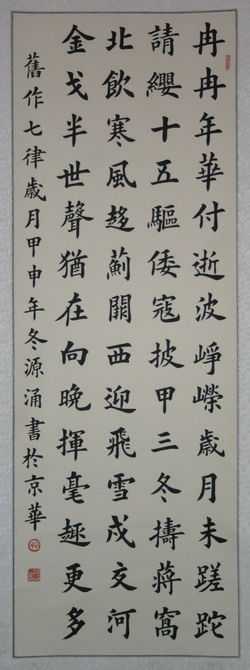 冉冉年華付逝波崢嶸歲月未蹉跎
請纓十五驅倭寇披甲三冬擣蔣窩
北飲寒風趍薊闗西迎飛雪戍交河
金戈半世聲猶在向晚揮毫趣更多
舊作七律歲月甲申年冬源涌書於京華